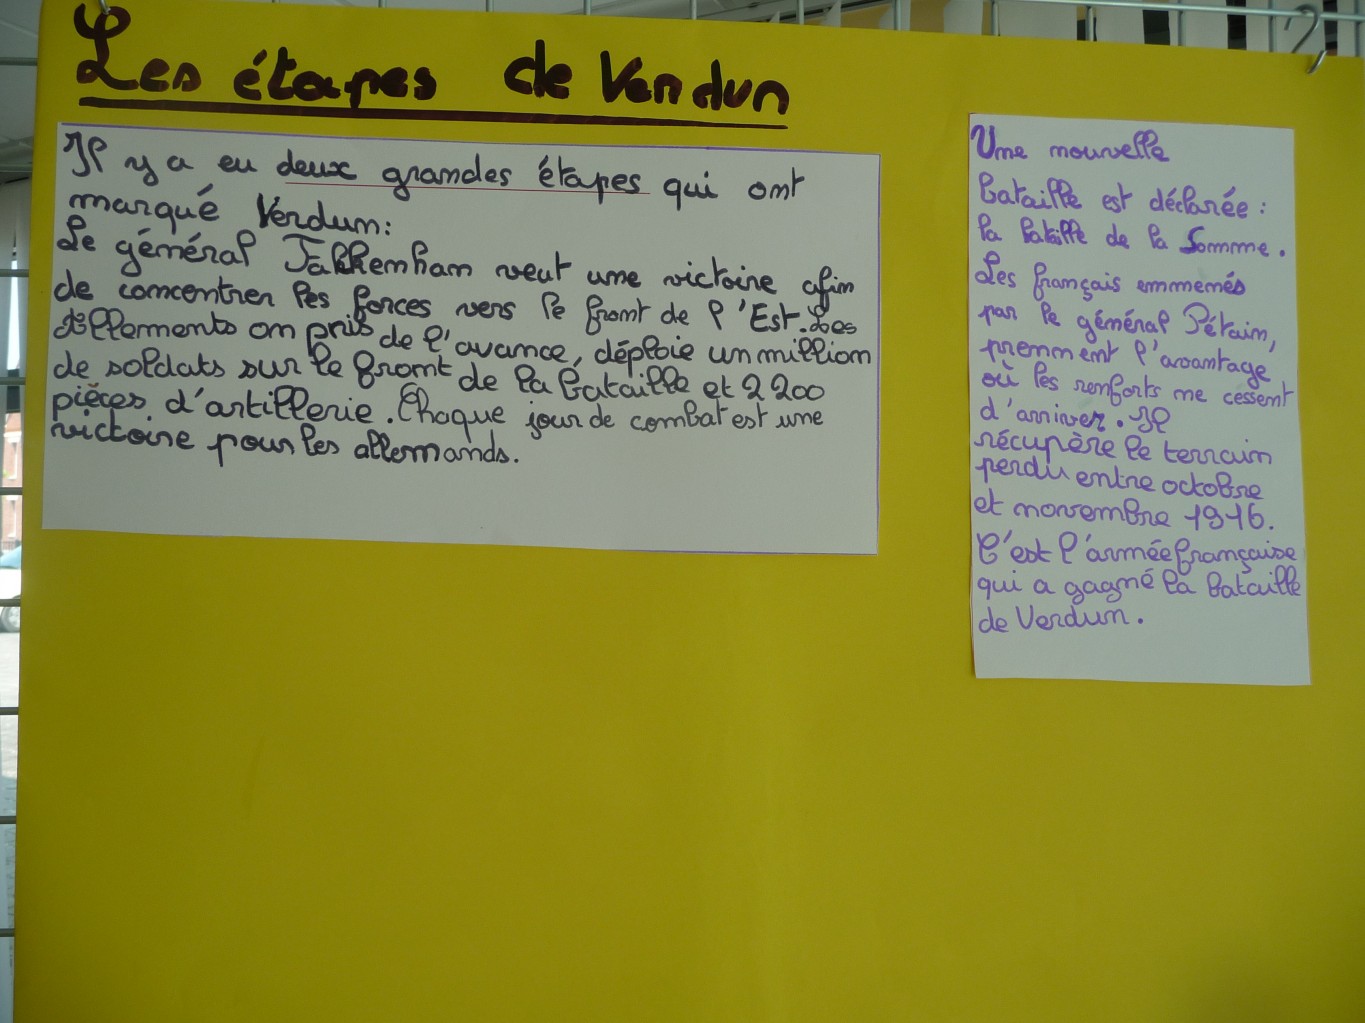 Les étapes de Verdun
Il y a eu deux grandes étapes qui ont
marqué Verdun:
Le général Falkkenham veut une victoire afin
de concentrer les forces vers le front de l'Est. Les
Allements on pris de l'avance, déploie un million
de soldats sur le front de la bataille et 2 200
pièces d'artillerie. Chaque jour de combat est une
victoire pour les allemands.
Une nouvelle
bataille est déclarée :
la bataille de la Somme.
Les français emmenés
par le général Pétain,
prennent l'avantage
où les renforts ne cessent
d'arriver. Il
récupère le terrain
perdu entre octobre
et novembre 1916.
C'est l'armée française
qui a gagné la bataille
de Verdun.